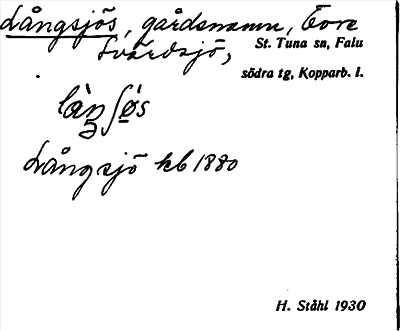 Långsjös, gårdsnamn, Tore
Svärdsjö,
St. Tuna sn, Falu
södra tg, Kopparb. l.
Långsjö kb 1880
H. Ståhl 1930